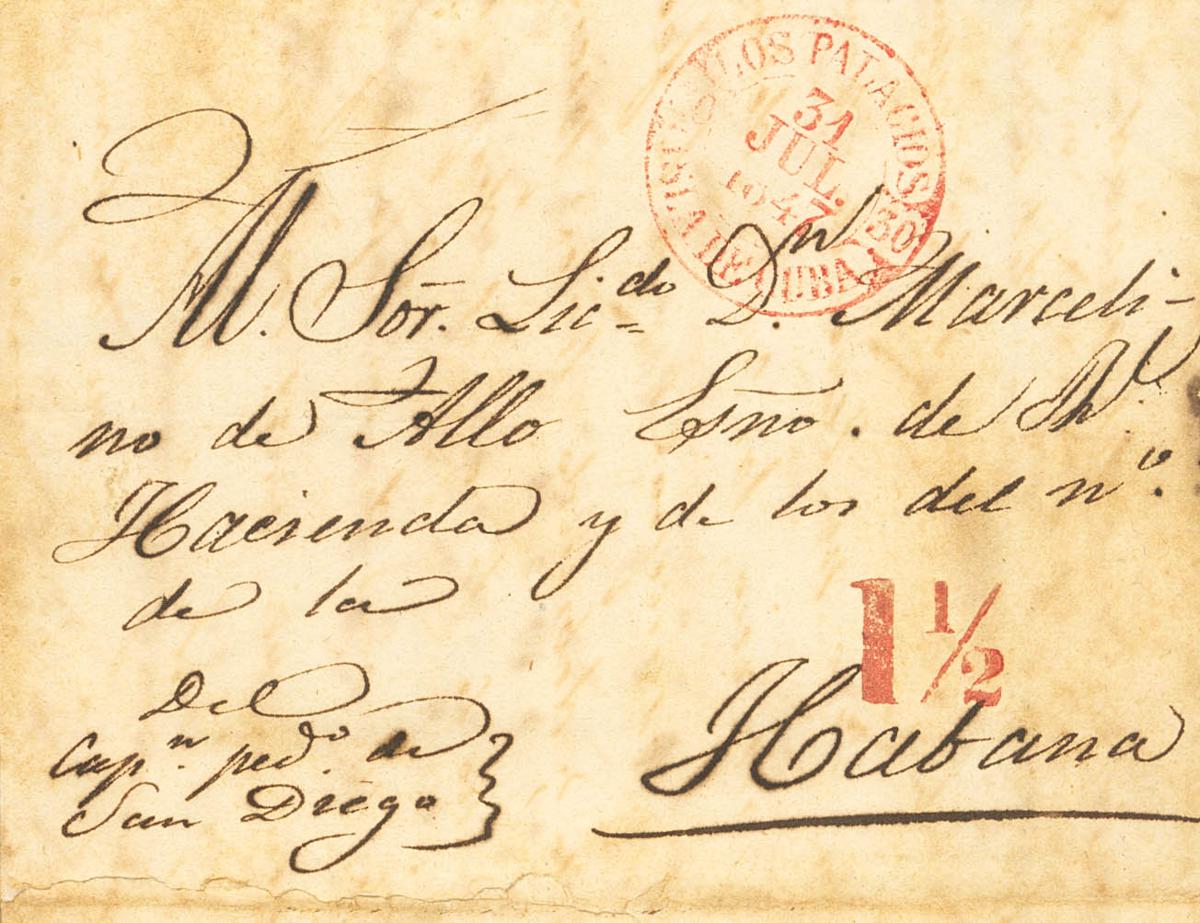 LOS PALACIOS
31
JUL.
1847
30
ISLA DE CUBA
M. Sor. Licdo Dn. Marceli-
no de Allo Esno. de Rl.
Hacienda y de los del no.
de la
1 1/2
Habana
Del
Capn. pedo. de
San Diego